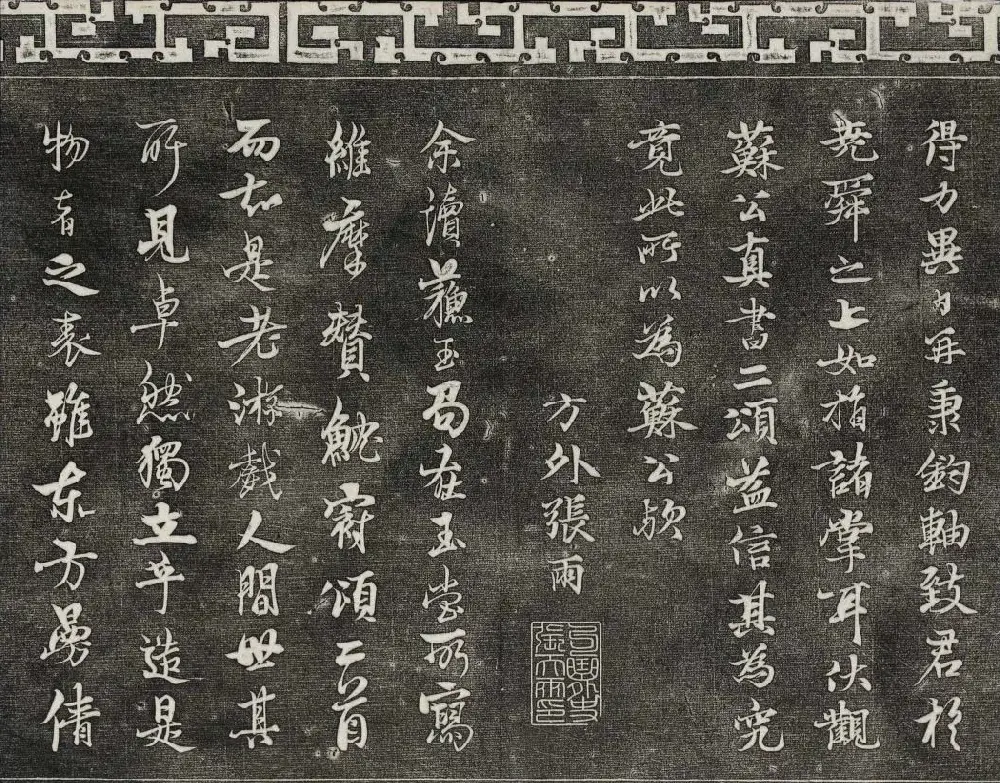 得力異再秉鈞軸致君於
堯舜之上如指諸掌耳伏觀
蘇公真書二頌益信其為究
竟此所以為蘇公歟
方外張雨
句曲外史張天雨印
余讀蘇玉局在玉堂所寫
維摩贊魫冠頌二首
而知是老游戲人間世其
所見卓然獨立乎造是
物者之表雖東方曼倩